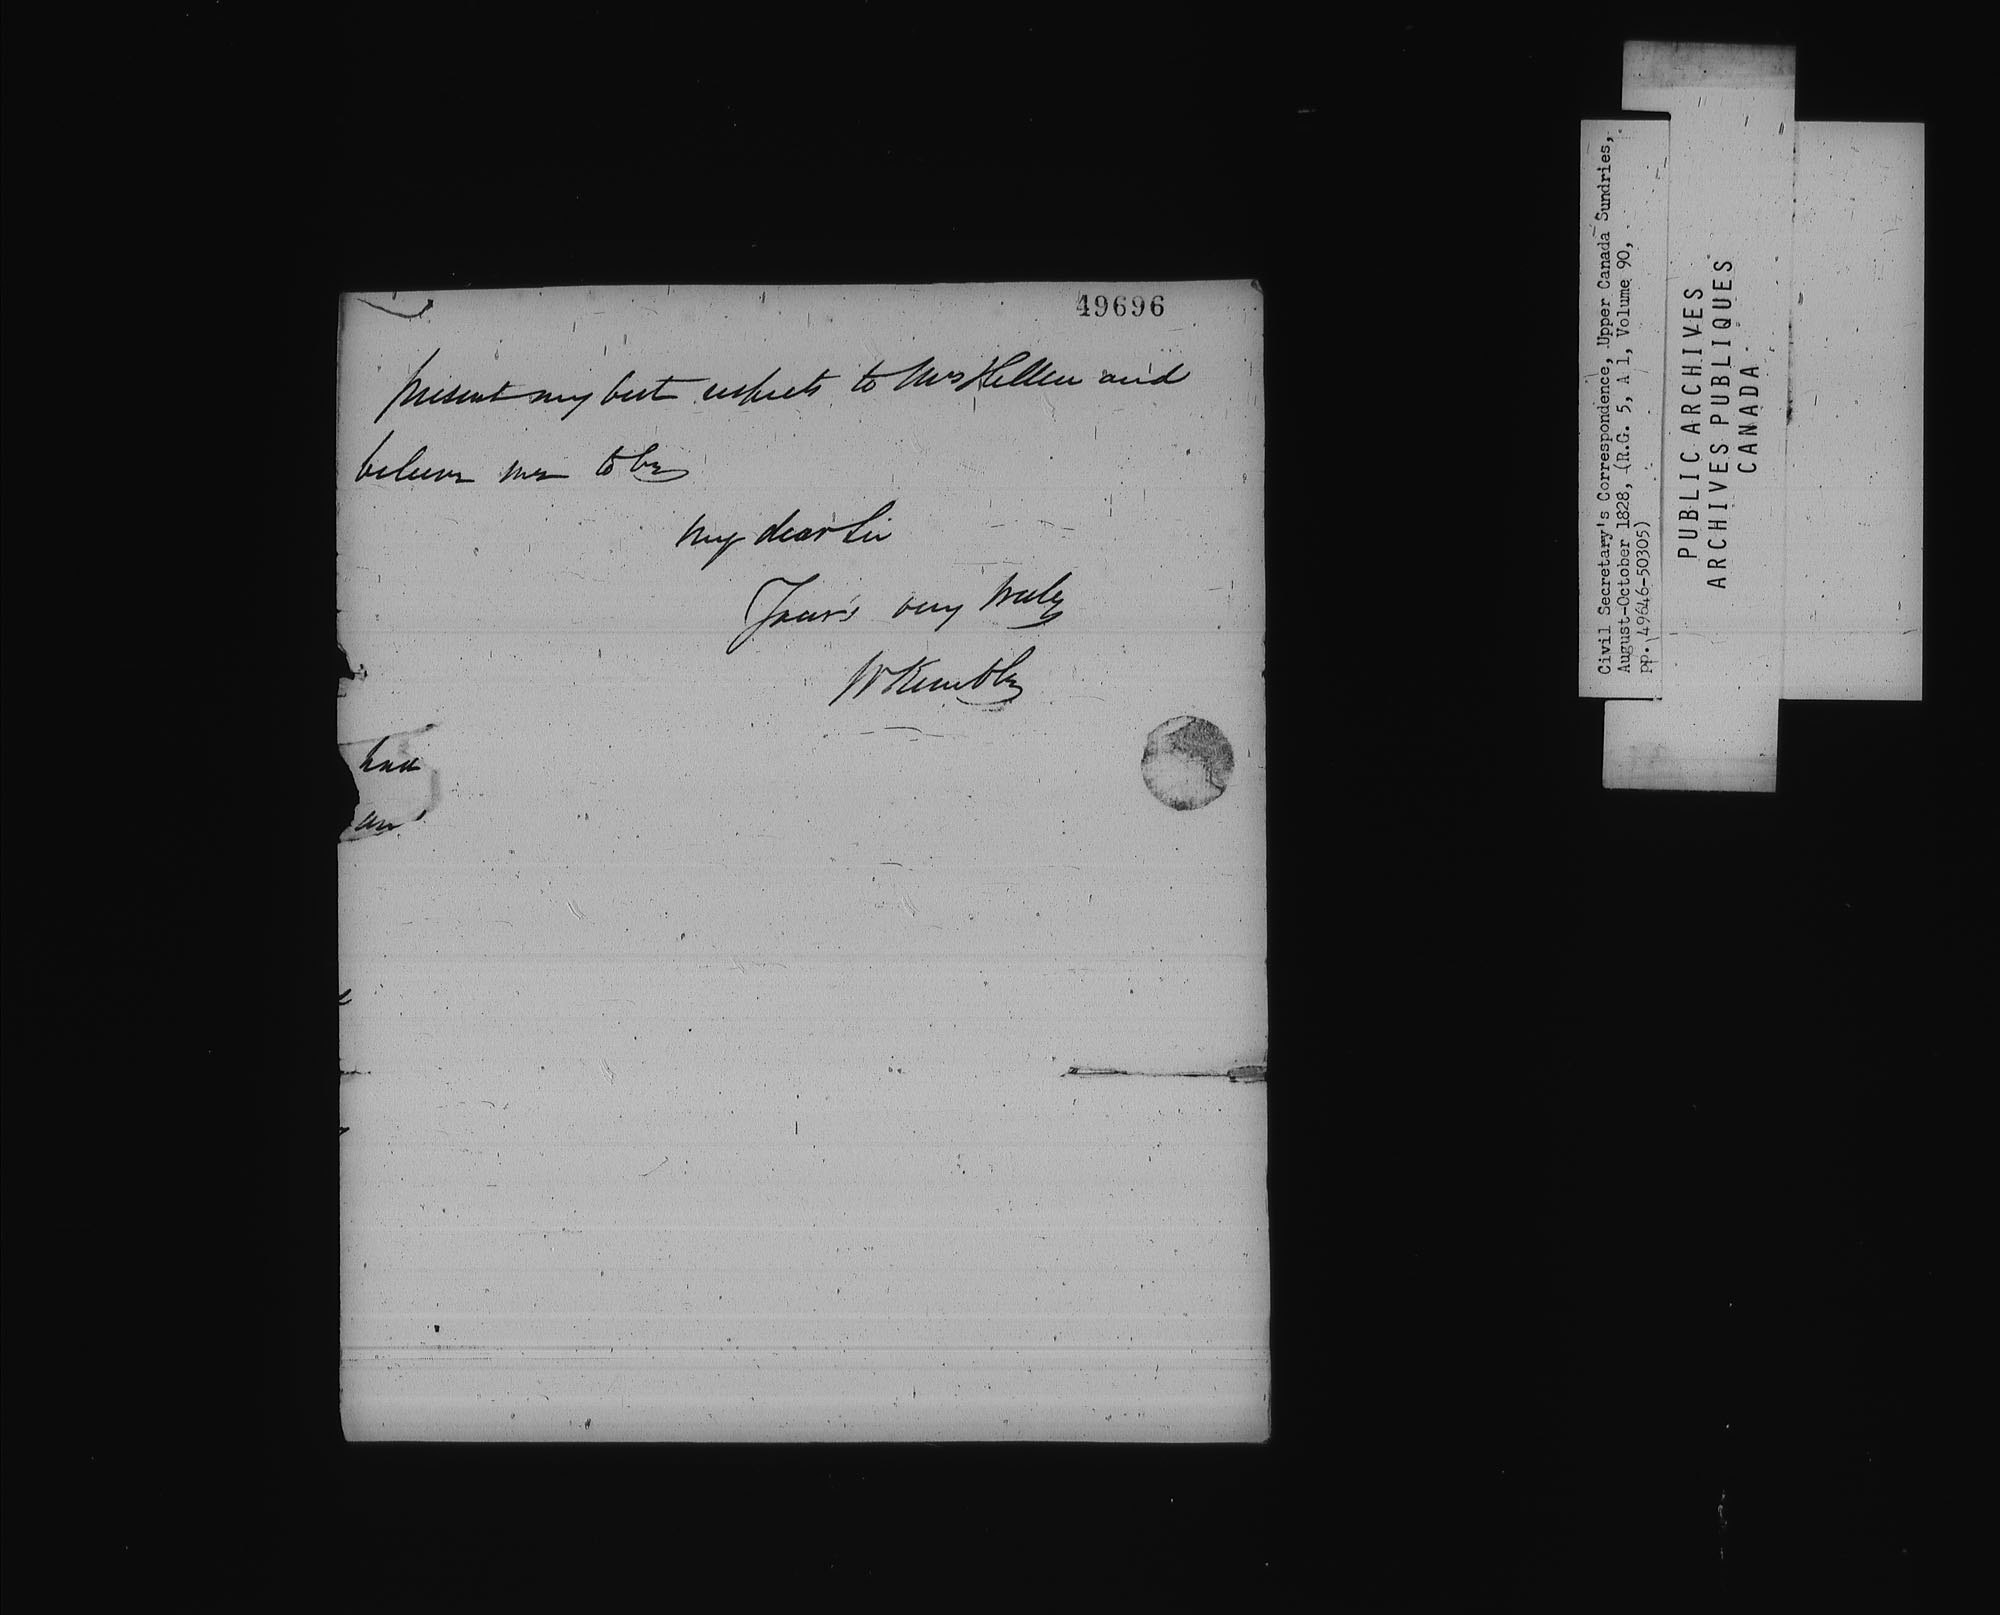 49696
present my best respects to Mrs Hillen and
believe me to be
my dear Sir
Yours very truly
W Kemble
had
an
Civil Secretary's Correspondence, Upper Canada Sundries,
August-October 1828, (R.G. 5, A 1, Volume 90,
pp. 49646-50305)
PUBLIC ARCHIVES
ARCHIVES PUBLIQUES
CANADA